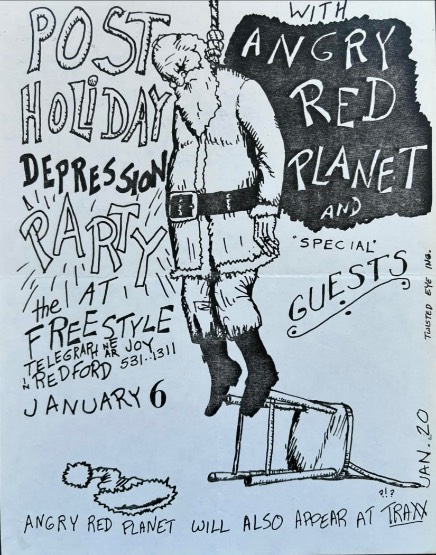 POST
HOLiDAY
DEPRESSION
PARTY
AT
the FREESTYLE
TELEGRAPH NEAR JOY
IN REDFORD 531-1311
JANUARY 6
WITH
ANGRY
RED
PLANET
AND
"SPECIAL"
GUESTS
TWISTED EYE INC.
ANGRY RED PLANET WILL ALSO APPEAR AT TRAXX JAN. 20
?!?